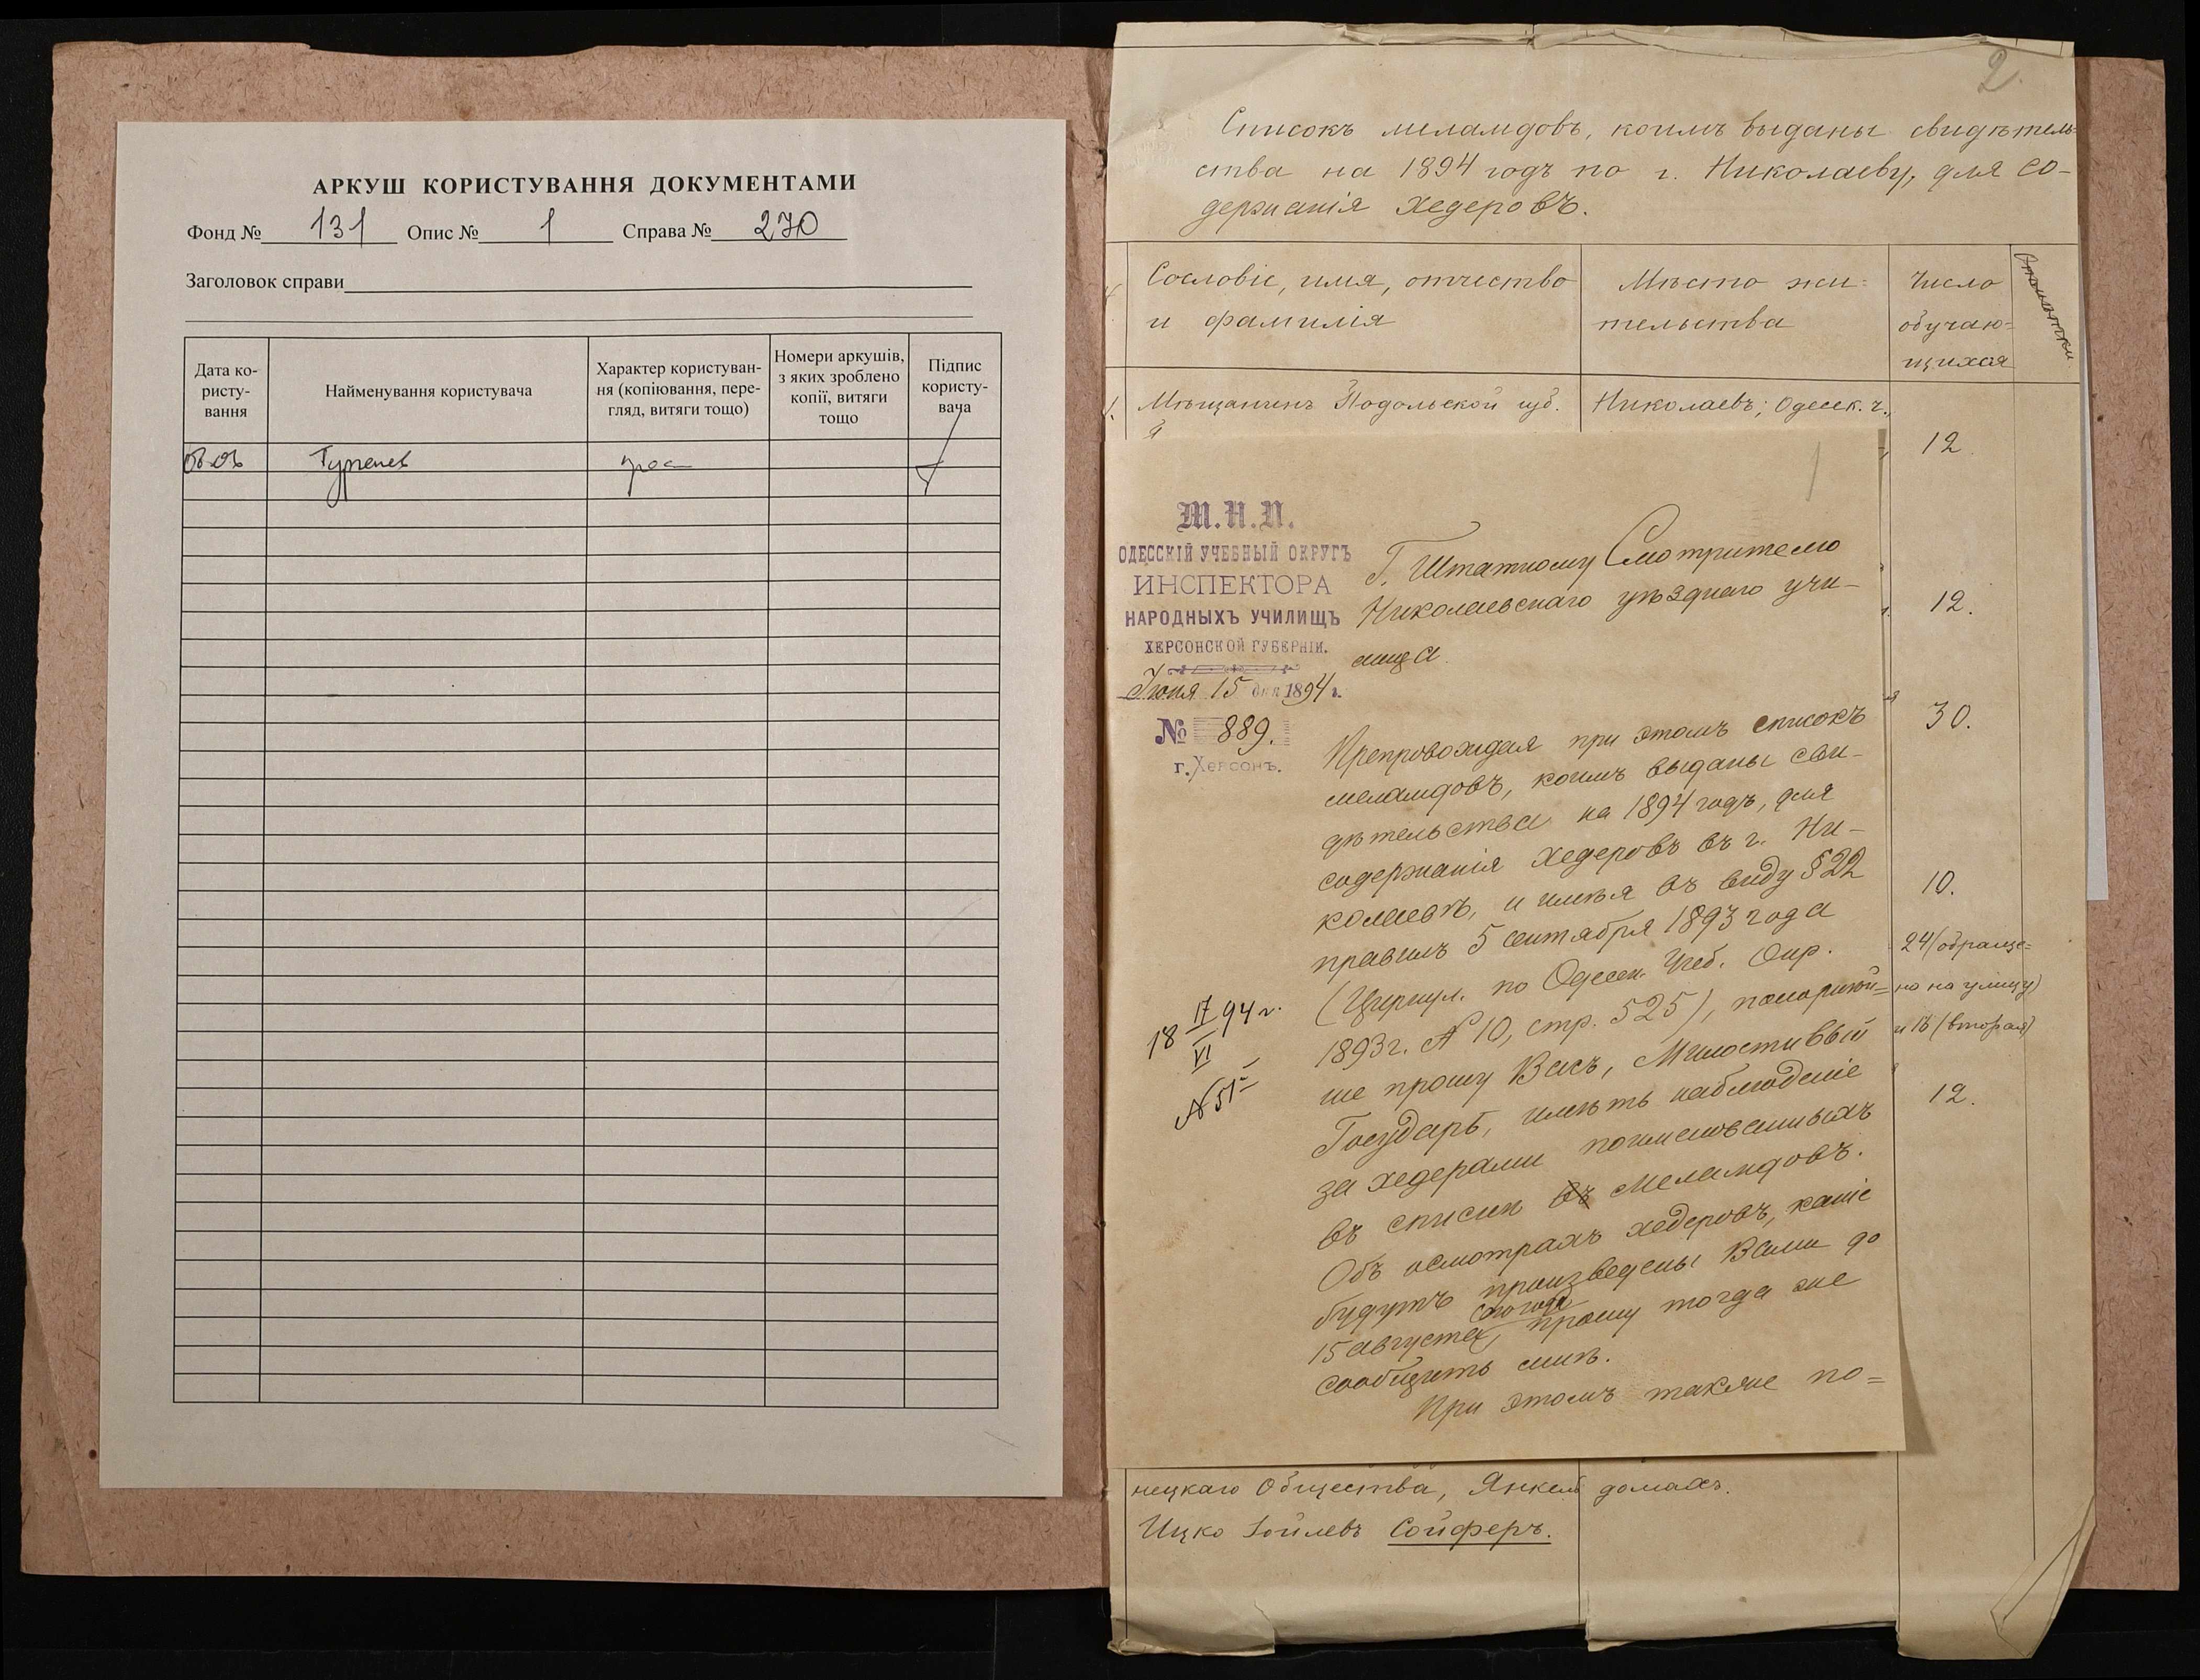 АРКУШ КОРИСТУВАННЯ ДОКУМЕНТАМИ
Фонд № 131 Опис № 1 Справа № 270
Заголовок справи
Дата ко-
ристу-
вання
Найменування користувача
Характер користуван-
ня (копіювання, пере-
гляд, витяги тощо)
Номери аркушів,
з яких зроблено
копії, витяги
тощо
Підпис
користу-
вача
2.
Списокъ меламдовъ, коимъ выданы свидѣтель-
ства на 1894 годъ по г. Николаеву, для со-
держанія хедеровъ.
Сословіе, имя, отчество
и фамилія
Мѣсто жи-
тельства
Число
обучаю-
щихся
Отмѣтки
1. Мѣщанинъ Подольской губ. Николаевъ; Одесск. ч.,
12
1
М.Н.П.
ОДЕССКІЙ УЧЕБНЫЙ ОКРУГЪ
ИНСПЕКТОРА
НАРОДНЫХЪ УЧИЛИЩЪ
ХЕРСОНСКОЙ ГУБЕРНІИ.
Іюня 15 дня 1894 г.
№ 889.
г. Херсонъ.
Г. Штатному Смотрителю
Николаевскаго уѣзднаго учи-
лища
Препровождая при этомъ списокъ
меламдовъ, коимъ выданы сви-
дѣтельства на 1894 годъ, для
содержанія хедеровъ въ г. Ни-
колаевѣ, и имѣя въ виду § 22
правилъ 5 сентября 1893 года
(Циркул. по Одесск. Учеб. Окр.
1893 г. № 10, стр. 525), покорнѣй-
ше прошу Васъ, Милостивый
Государь, имѣть наблюденіе
за хедерами поименованныхъ
въ списки въ меламдовъ.
Объ осмотрахъ хедеровъ, какіе
будутъ произведены Вами до
15 августа сего года, прошу тогда же
сообщить мнѣ.
При этомъ также по=
18 17/VI 94 г.
№ 51
12.
30.
10.
24 (обраще=
но на улицу)
и 16 (вторая)
12.
нецкаго Общества, Янкель домахъ.
Ицко Зойлевъ Сойферъ.